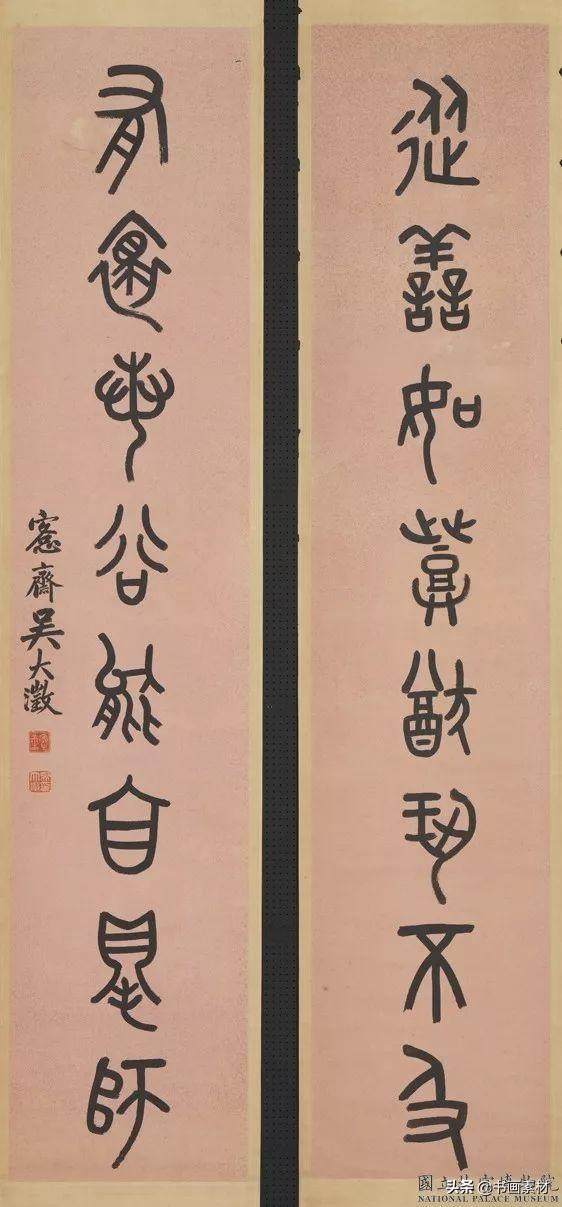 從善如登猶恐不及
有能自得師
愙齋吳大澂
國立故宮博物院
NATIONAL PALACE MUSEUM
头条 @书画素材